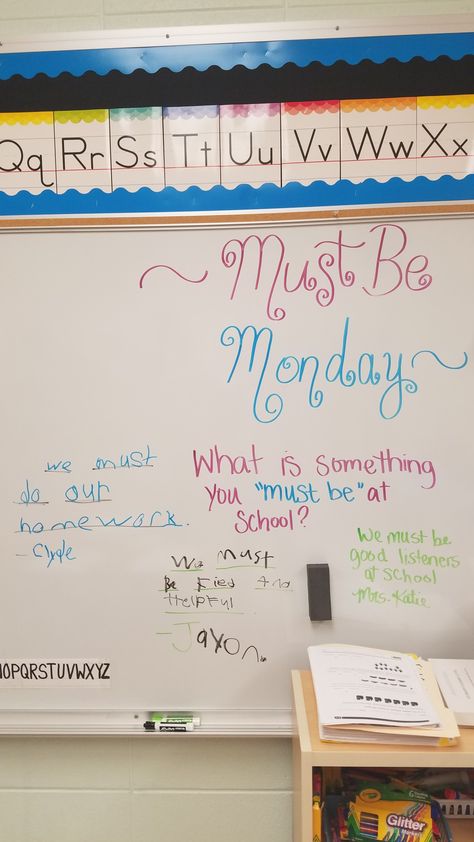 Qq Rr Ss Tt Uu Vv Ww Xx
~ Must Be
Monday ~
we must
do our
homework.
- Clyde
What is something
you "must be" at
school?
We must be
good listeners
at school
- Mrs. Katie
We must
be Cied And
HelPFul
- Jayon.
NOPQRSTUVWXYZ
Crayola
Glitter
Markers